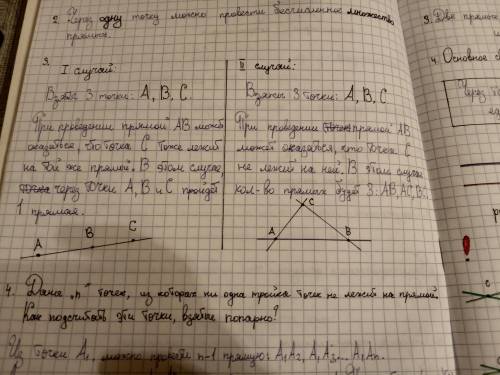 2. Через одну точку можно провести бесчисленное множество
прямых.
3.
I случай:
Взяты 3 точки: A, B, C.
При проведении прямой AB может
оказаться, что точка C тоже лежит
на той же прямой. В этом случае,
через точки A, B и C пройдёт
1 прямая.
A B C
II случай:
Взяты 3 точки: A, B, C.
При проведении прямой AB
может оказаться, что точка C
не лежит на ней. В этом случае
кол-во прямых будет 3: AB, AC, B
C
A B
4. Дано "n" точек, из которых ни одна тройка точек не лежит на прямой.
Как подсчитать эти точки, взятые попарно?
Из точки A₁, можно провести n-1 прямую: A₁A₂, A₁A₃... A₁An.
3. Две прямые
4. Основное с
Через
!